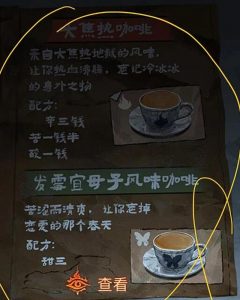 大焦热咖啡
来自大焦热地狱的风味，
让你热血沸腾，忘记冷冰冰
的身外之物
配方：
辛三钱
苦一钱半
酸一钱
发霉宜母子风味咖啡
苦涩而清爽，让你忘掉
恋爱的那个春天
配方：
甜三
查看